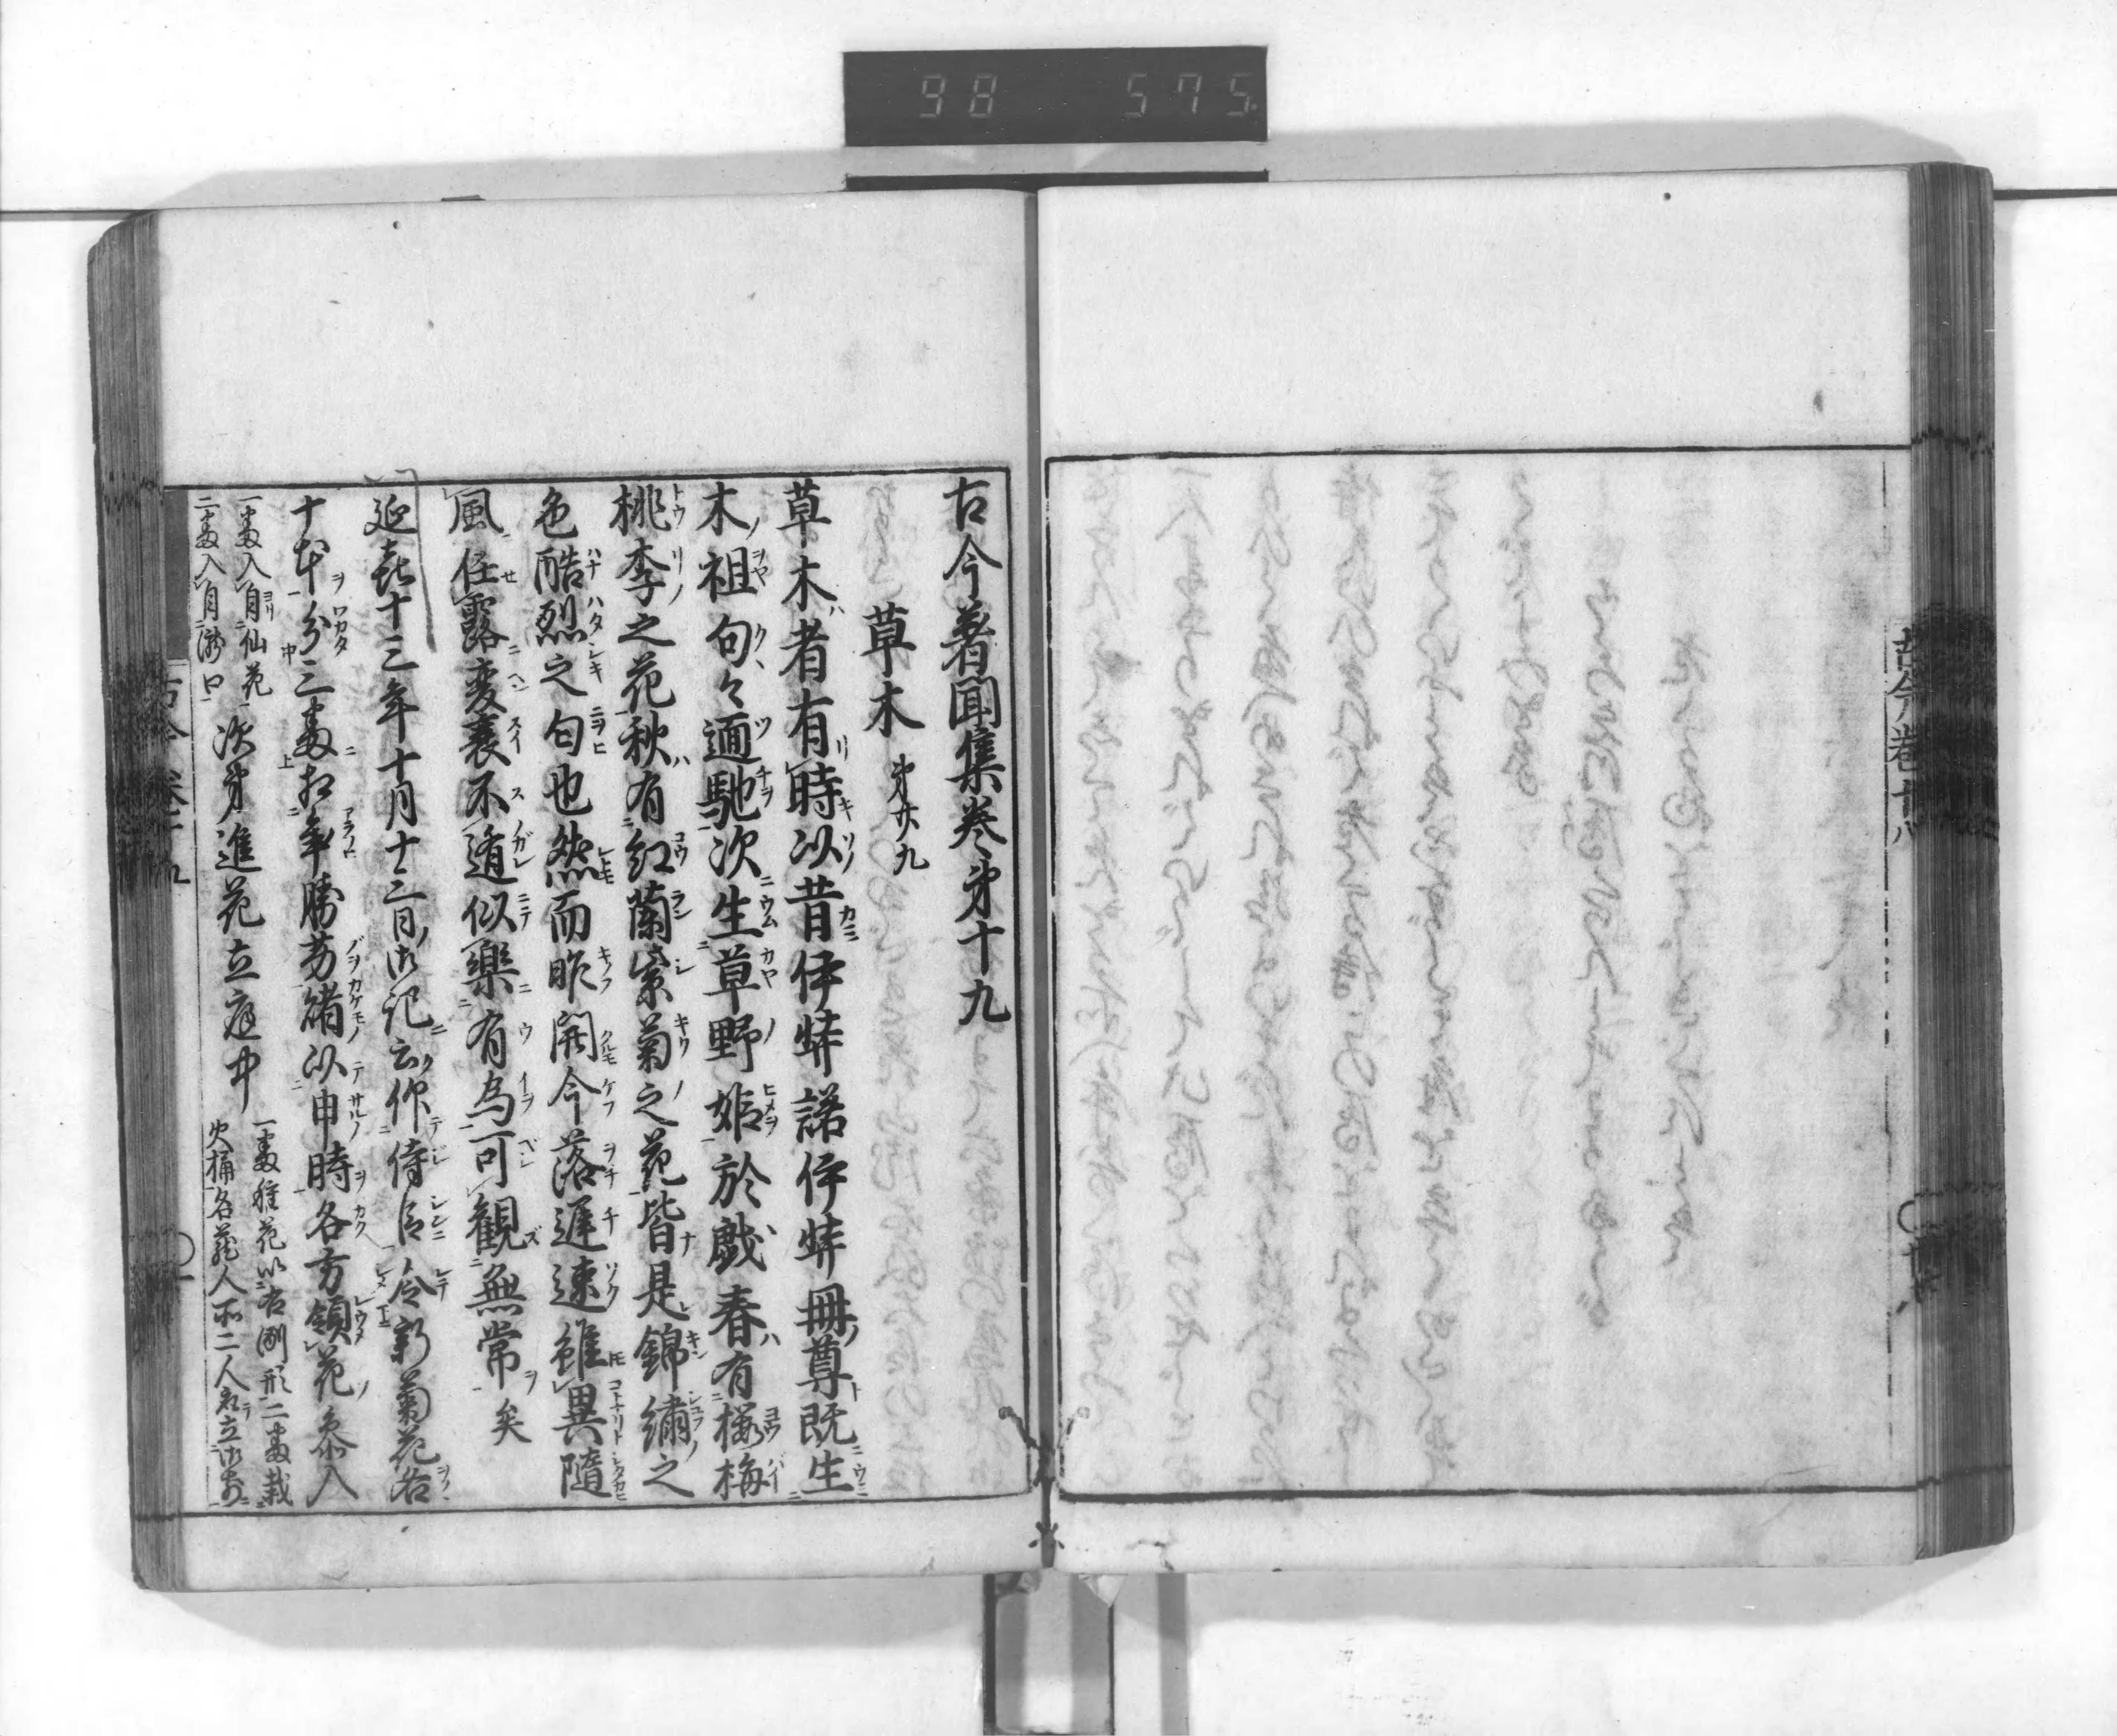 98 575
古今巻十八
古今著聞集巻第十九
草木 第廿九
草木者有時以昔伊弉諾伊弉冊尊既生
木祖句々廼馳次生草野姫於戯春有桜梅
桃李之花秋有紅蘭紫菊之花皆是錦繍之
色酷烈之匂也然而昨開今落遅速雖異随
風任露変衰不遁似楽有為可観無常矣
延喜十三年十月十三日御記云仰侍臣令新菊花各
十本分三番相争勝劣緒以申時各方領花参入
一番入自仙花
二番入自瀧口
次第進花立庭中
一番種花以右洲形二番栽
火桶各蔵人所二人
古今巻十九